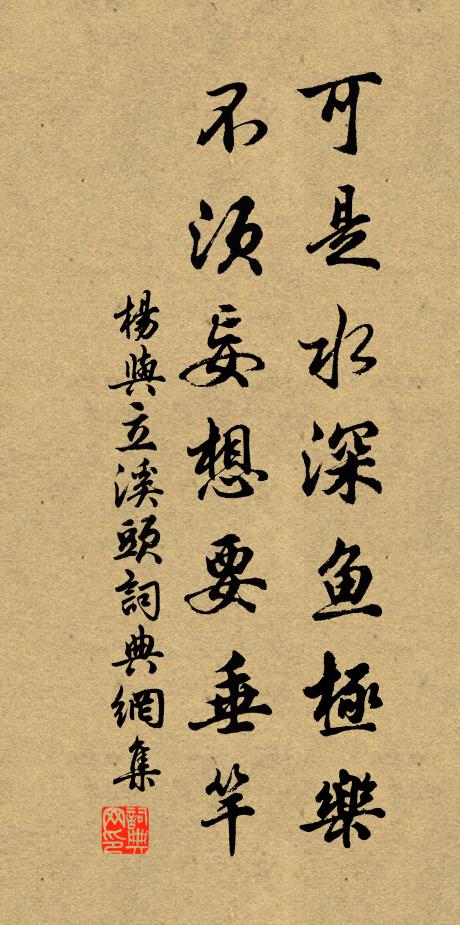 可是水深鱼極樂
不須妄想要垂竿
楊與立溪頭詞典網集
詞典網印